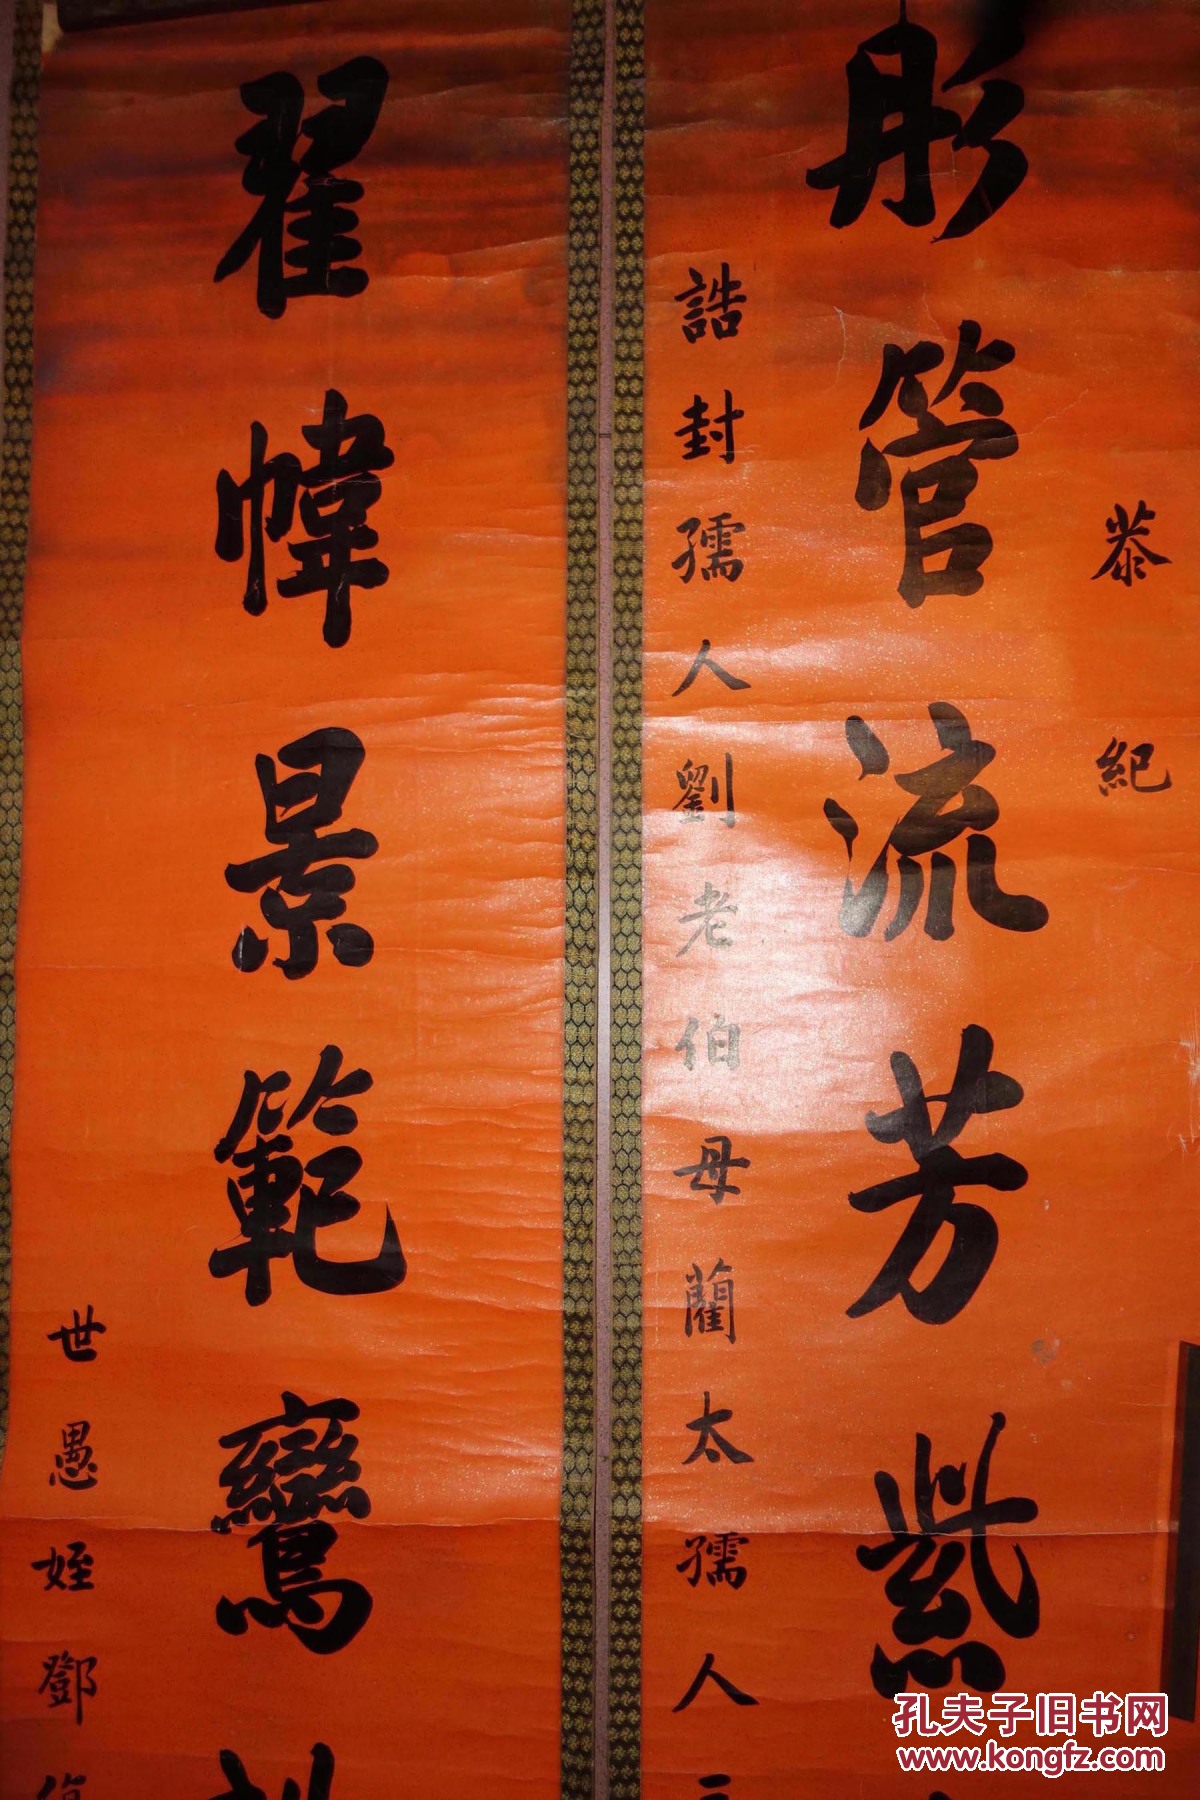 恭紀
彤管流芳紫
誥封孺人劉老伯母藺太孺人
翟幃景範鸞
世愚姪鄧
孔夫子旧书网
www.kongfz.com